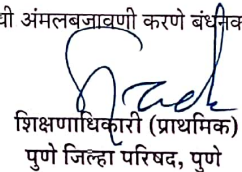 अंमलबजावणी करणे बंधनक
शिक्षणाधिकारी (प्राथमिक)
पुणे जिल्हा परिषद, पुणे